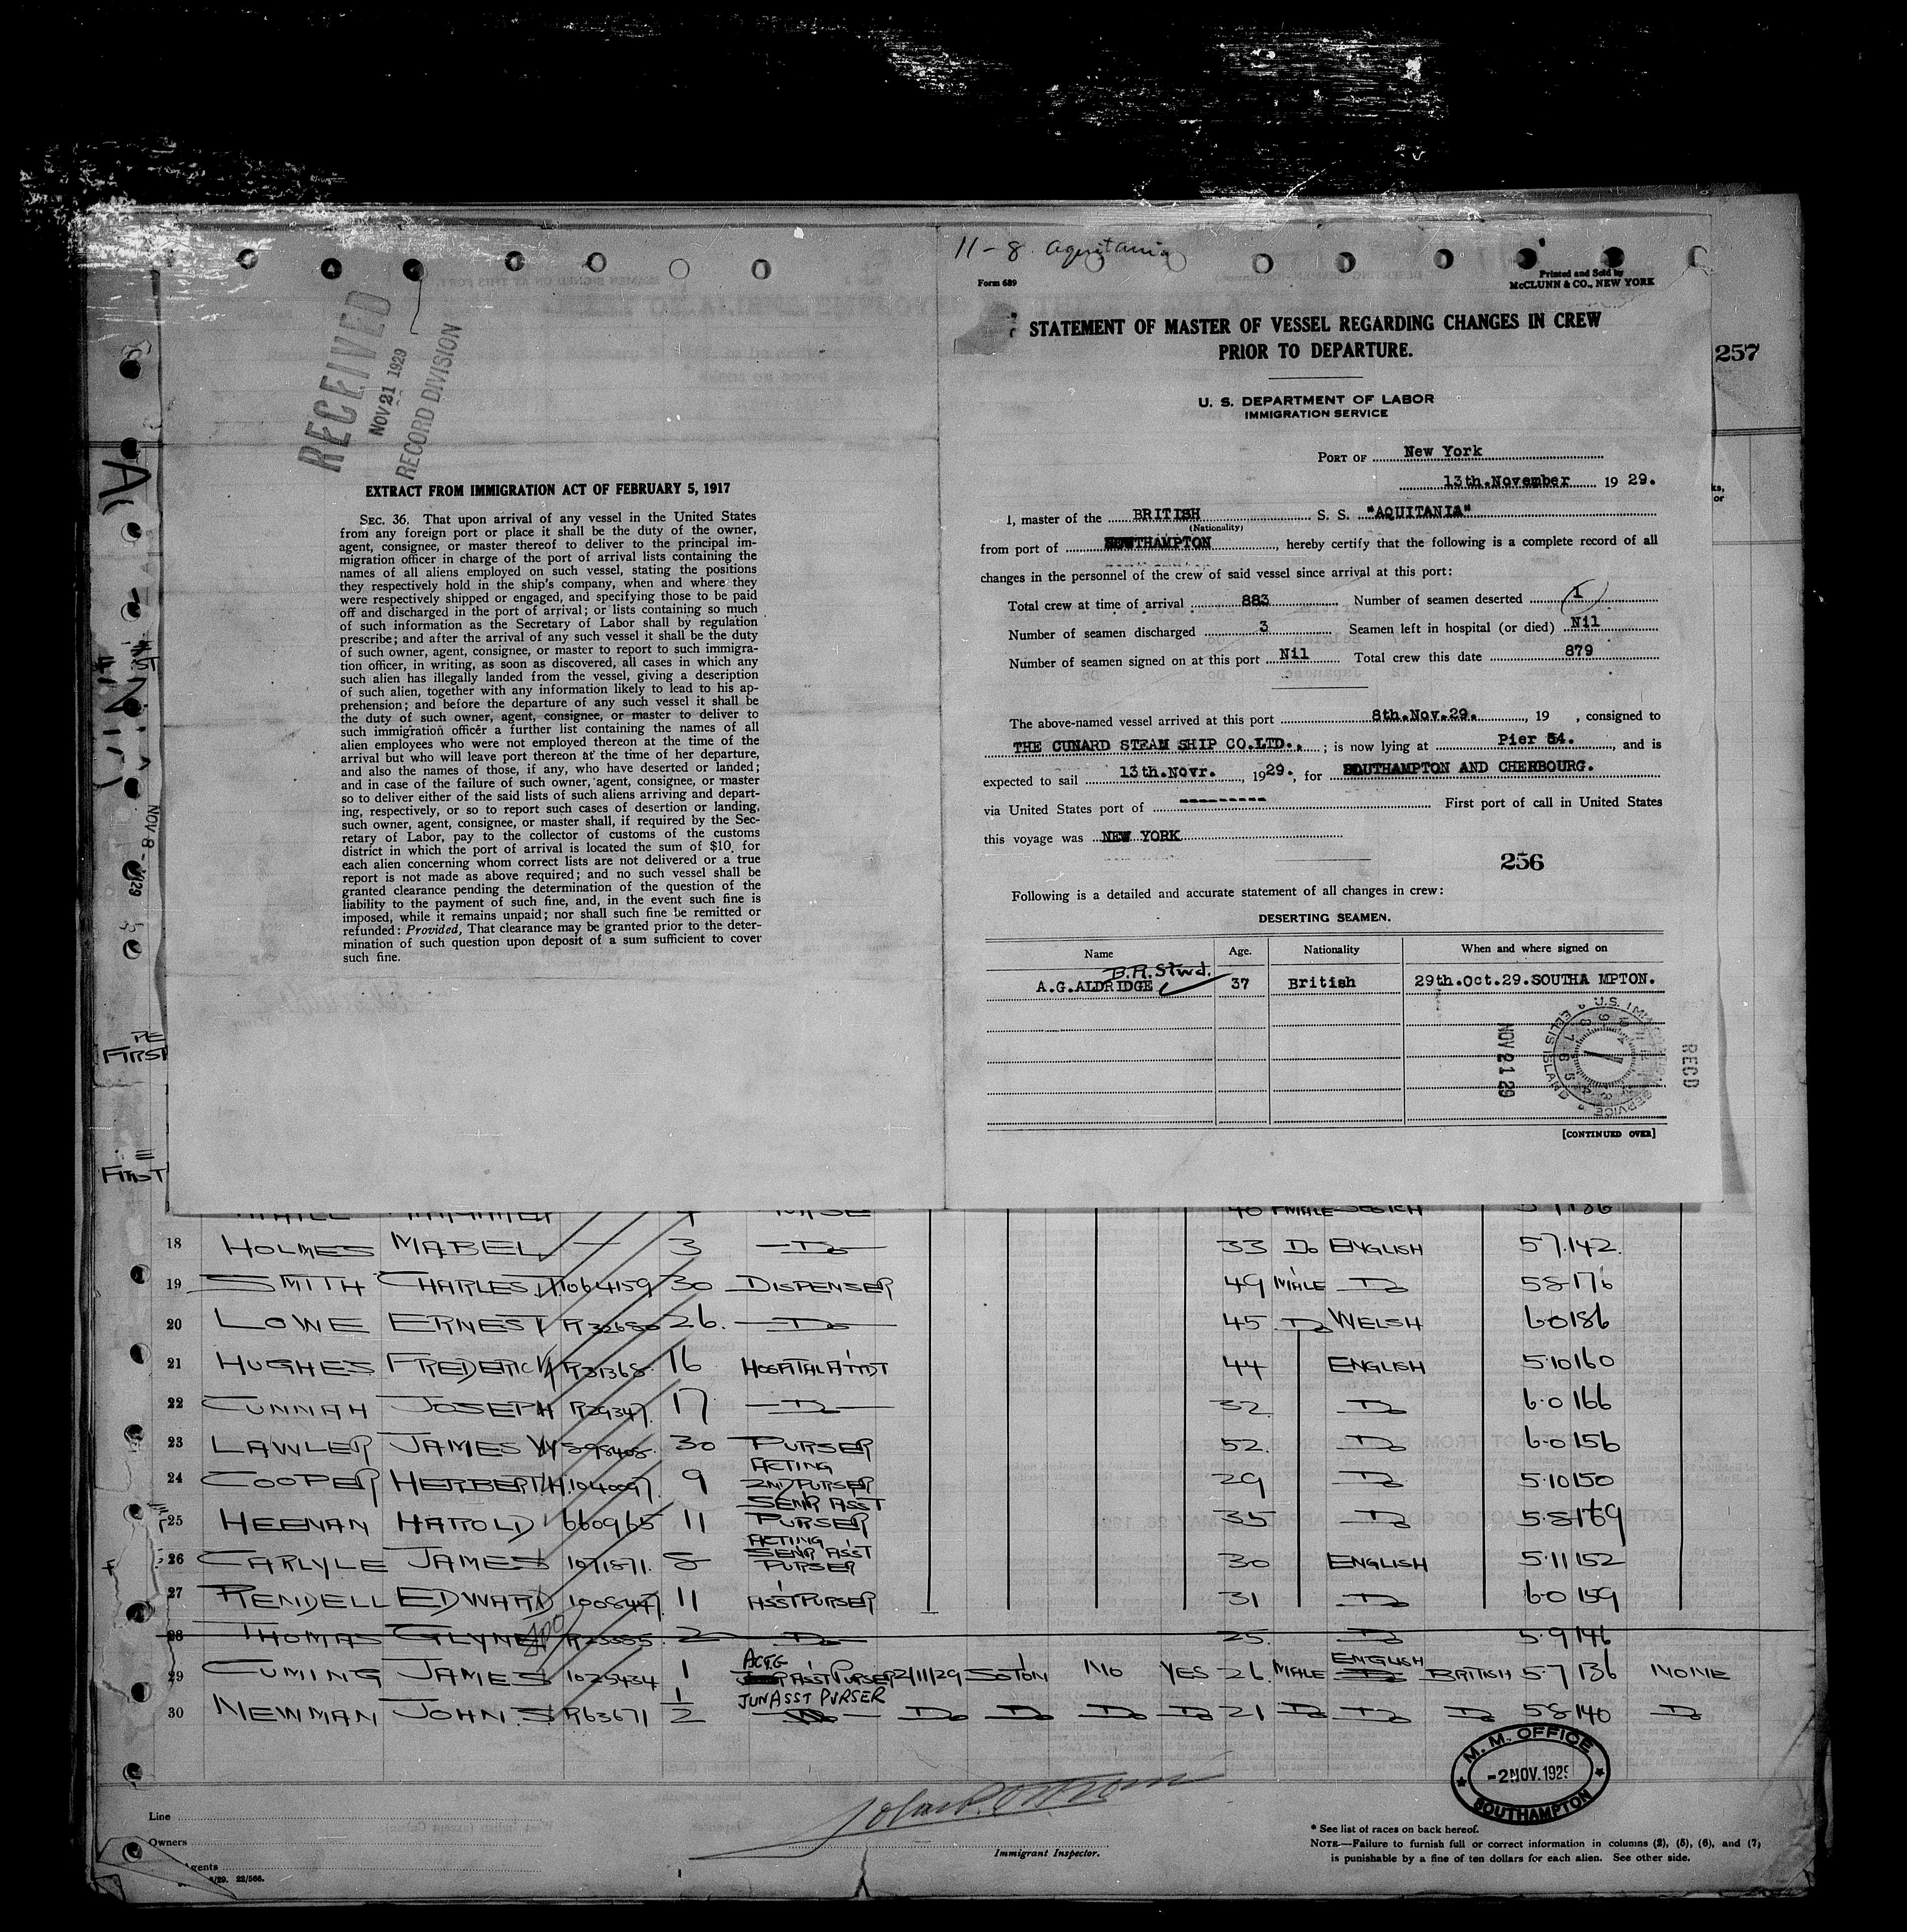 11-8. Aquitania
Form 689
Printed and Sold by
McCLUNN & CO., NEW YORK
STATEMENT OF MASTER OF VESSEL REGARDING CHANGES IN CREW
PRIOR TO DEPARTURE.
257
U. S. DEPARTMENT OF LABOR
IMMIGRATION SERVICE
PORT OF New York
13th.November 19 29.
I, master of the BRITISH S. S. "AQUITANIA"
(Nationality)
from port of SOUTHAMPTON, hereby certify that the following is a complete record of all
changes in the personnel of the crew of said vessel since arrival at this port:
Total crew at time of arrival 883 Number of seamen deserted 1
Number of seamen discharged 3 Seamen left in hospital (or died) Nil
Number of seamen signed on at this port Nil Total crew this date 879
The above-named vessel arrived at this port 8th.Nov.29., 19 , consigned to
THE CUNARD STEAM SHIP CO.LTD., ; is now lying at Pier 54., and is
expected to sail 13th.Novr., 1929., for SOUTHAMPTON AND CHERBOURG.
via United States port of --------- First port of call in United States
this voyage was NEW YORK
256
Following is a detailed and accurate statement of all changes in crew:
DESERTING SEAMEN.
Name Age. Nationality When and where signed on
B.R. Stwd.
A.G.ALDRIDGE 37 British 29th.Oct.29.SOUTHA MPTON.
U.S. IMMIGRATION SERVICE ELLIS ISLAND
NOV 21 29
RECD
[CONTINUED OVER]
RECEIVED
NOV 21 1929
RECORD DIVISION
EXTRACT FROM IMMIGRATION ACT OF FEBRUARY 5, 1917
SEC. 36. That upon arrival of any vessel in the United States
from any foreign port or place it shall be the duty of the owner,
agent, consignee, or master thereof to deliver to the principal im-
migration officer in charge of the port of arrival lists containing the
names of all aliens employed on such vessel, stating the positions
they respectively hold in the ship's company, when and where they
were respectively shipped or engaged, and specifying those to be paid
off and discharged in the port of arrival; or lists containing so much
of such information as the Secretary of Labor shall by regulation
prescribe; and after the arrival of any such vessel it shall be the duty
of such owner, agent, consignee, or master to report to such immigra-
tion officer, in writing, as soon as discovered, all cases in which any
such alien has illegally landed from the vessel, giving a description
of such alien, together with any information likely to lead to his ap-
prehension; and before the departure of any such vessel it shall be
the duty of such owner, agent, consignee, or master to deliver to
such immigration officer a further list containing the names of all
alien employees who were not employed thereon at the time of the
arrival but who will leave port thereon at the time of her departure,
and also the names of those, if any, who have deserted or landed;
and in case of the failure of such owner, agent, consignee, or master
so to deliver either of the said lists of such aliens arriving and depart-
ing, respectively, or so to report such cases of desertion or landing,
such owner, agent, consignee, or master shall, if required by the Sec-
retary of Labor, pay to the collector of customs of the customs
district in which the port of arrival is located the sum of $10 for
each alien concerning whom correct lists are not delivered or a true
report is not made as above required; and no such vessel shall be
granted clearance pending the determination of the question of the
liability to the payment of such fine, and, in the event such fine is
imposed, while it remains unpaid; nor shall such fine be remitted or
refunded: Provided, That clearance may be granted prior to the deter-
mination of such question upon deposit of a sum sufficient to cover
such fine.
NOV 8 - 1929
FIRST
FIRST
18 HOLMES MABEL — 3 Do 33 Do ENGLISH 5 7. 142.
19 SMITH CHARLES 1064159 30 DISPENSER 49 MALE Do 5 8 176
20 LOWE ERNEST R32680 26. Do 45 Do WELSH 6 0 186
21 HUGHES FREDERICK R31368 16 HOSPITAL ATTDT 44 ENGLISH 5.10 160
22 CUNNAH JOSEPH R29347. 17 Do 32 Do 6.0 166
23 LAWLER JAMES W 598405. 30 PURSER 52. Do 6.0 156
24 COOPER HERBERT H. 1040097. 9 ACTING 2ND PURSER 29 Do 5.10 150
25 HEENAN HAROLD 660965 11 SENR ASST PURSER 35 Do 5.8 169
26 CARLYLE JAMES 1071871. 8 ACTING SENR ASST PURSER 30 ENGLISH 5.11 152
27 RENDELL EDWARD 1008447. 11 ASST PURSER 31 Do 6.0 159
28 THOMAS GLYNE R25585. 2 Do 25. Do 5.9 146
29 CUMING JAMES 1025434 1 ACTG ASST PURSER 2/11/29 SOTON NO YES 26. MALE ENGLISH BRITISH 5.7 136 NONE
30 NEWMAN JOHN. S R63671 1/2 JUN ASST PURSER Do Do Do Do 21 Do Do Do 5 8 140 Do
M. M. OFFICE
-2 NOV. 1929
SOUTHAMPTON
Line
Owners
Agents
/29. 22/566.
Immigrant Inspector.
* See list of races on back hereof.
NOTE—Failure to furnish full or correct information in columns (2), (5), (6), and (7)
is punishable by a fine of ten dollars for each alien. See other side.